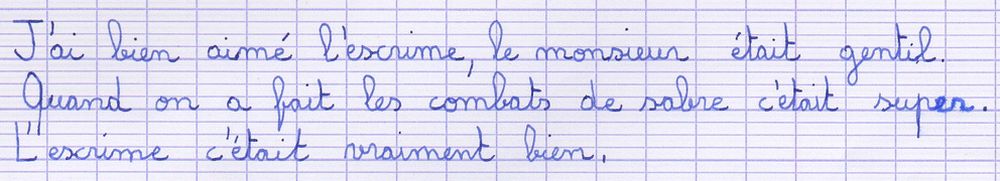 J'ai bien aimé l'escrime, le monsieur était gentil.
Quand on a fait les combats de sabre c'était super.
L'escrime c'était vraiment bien.